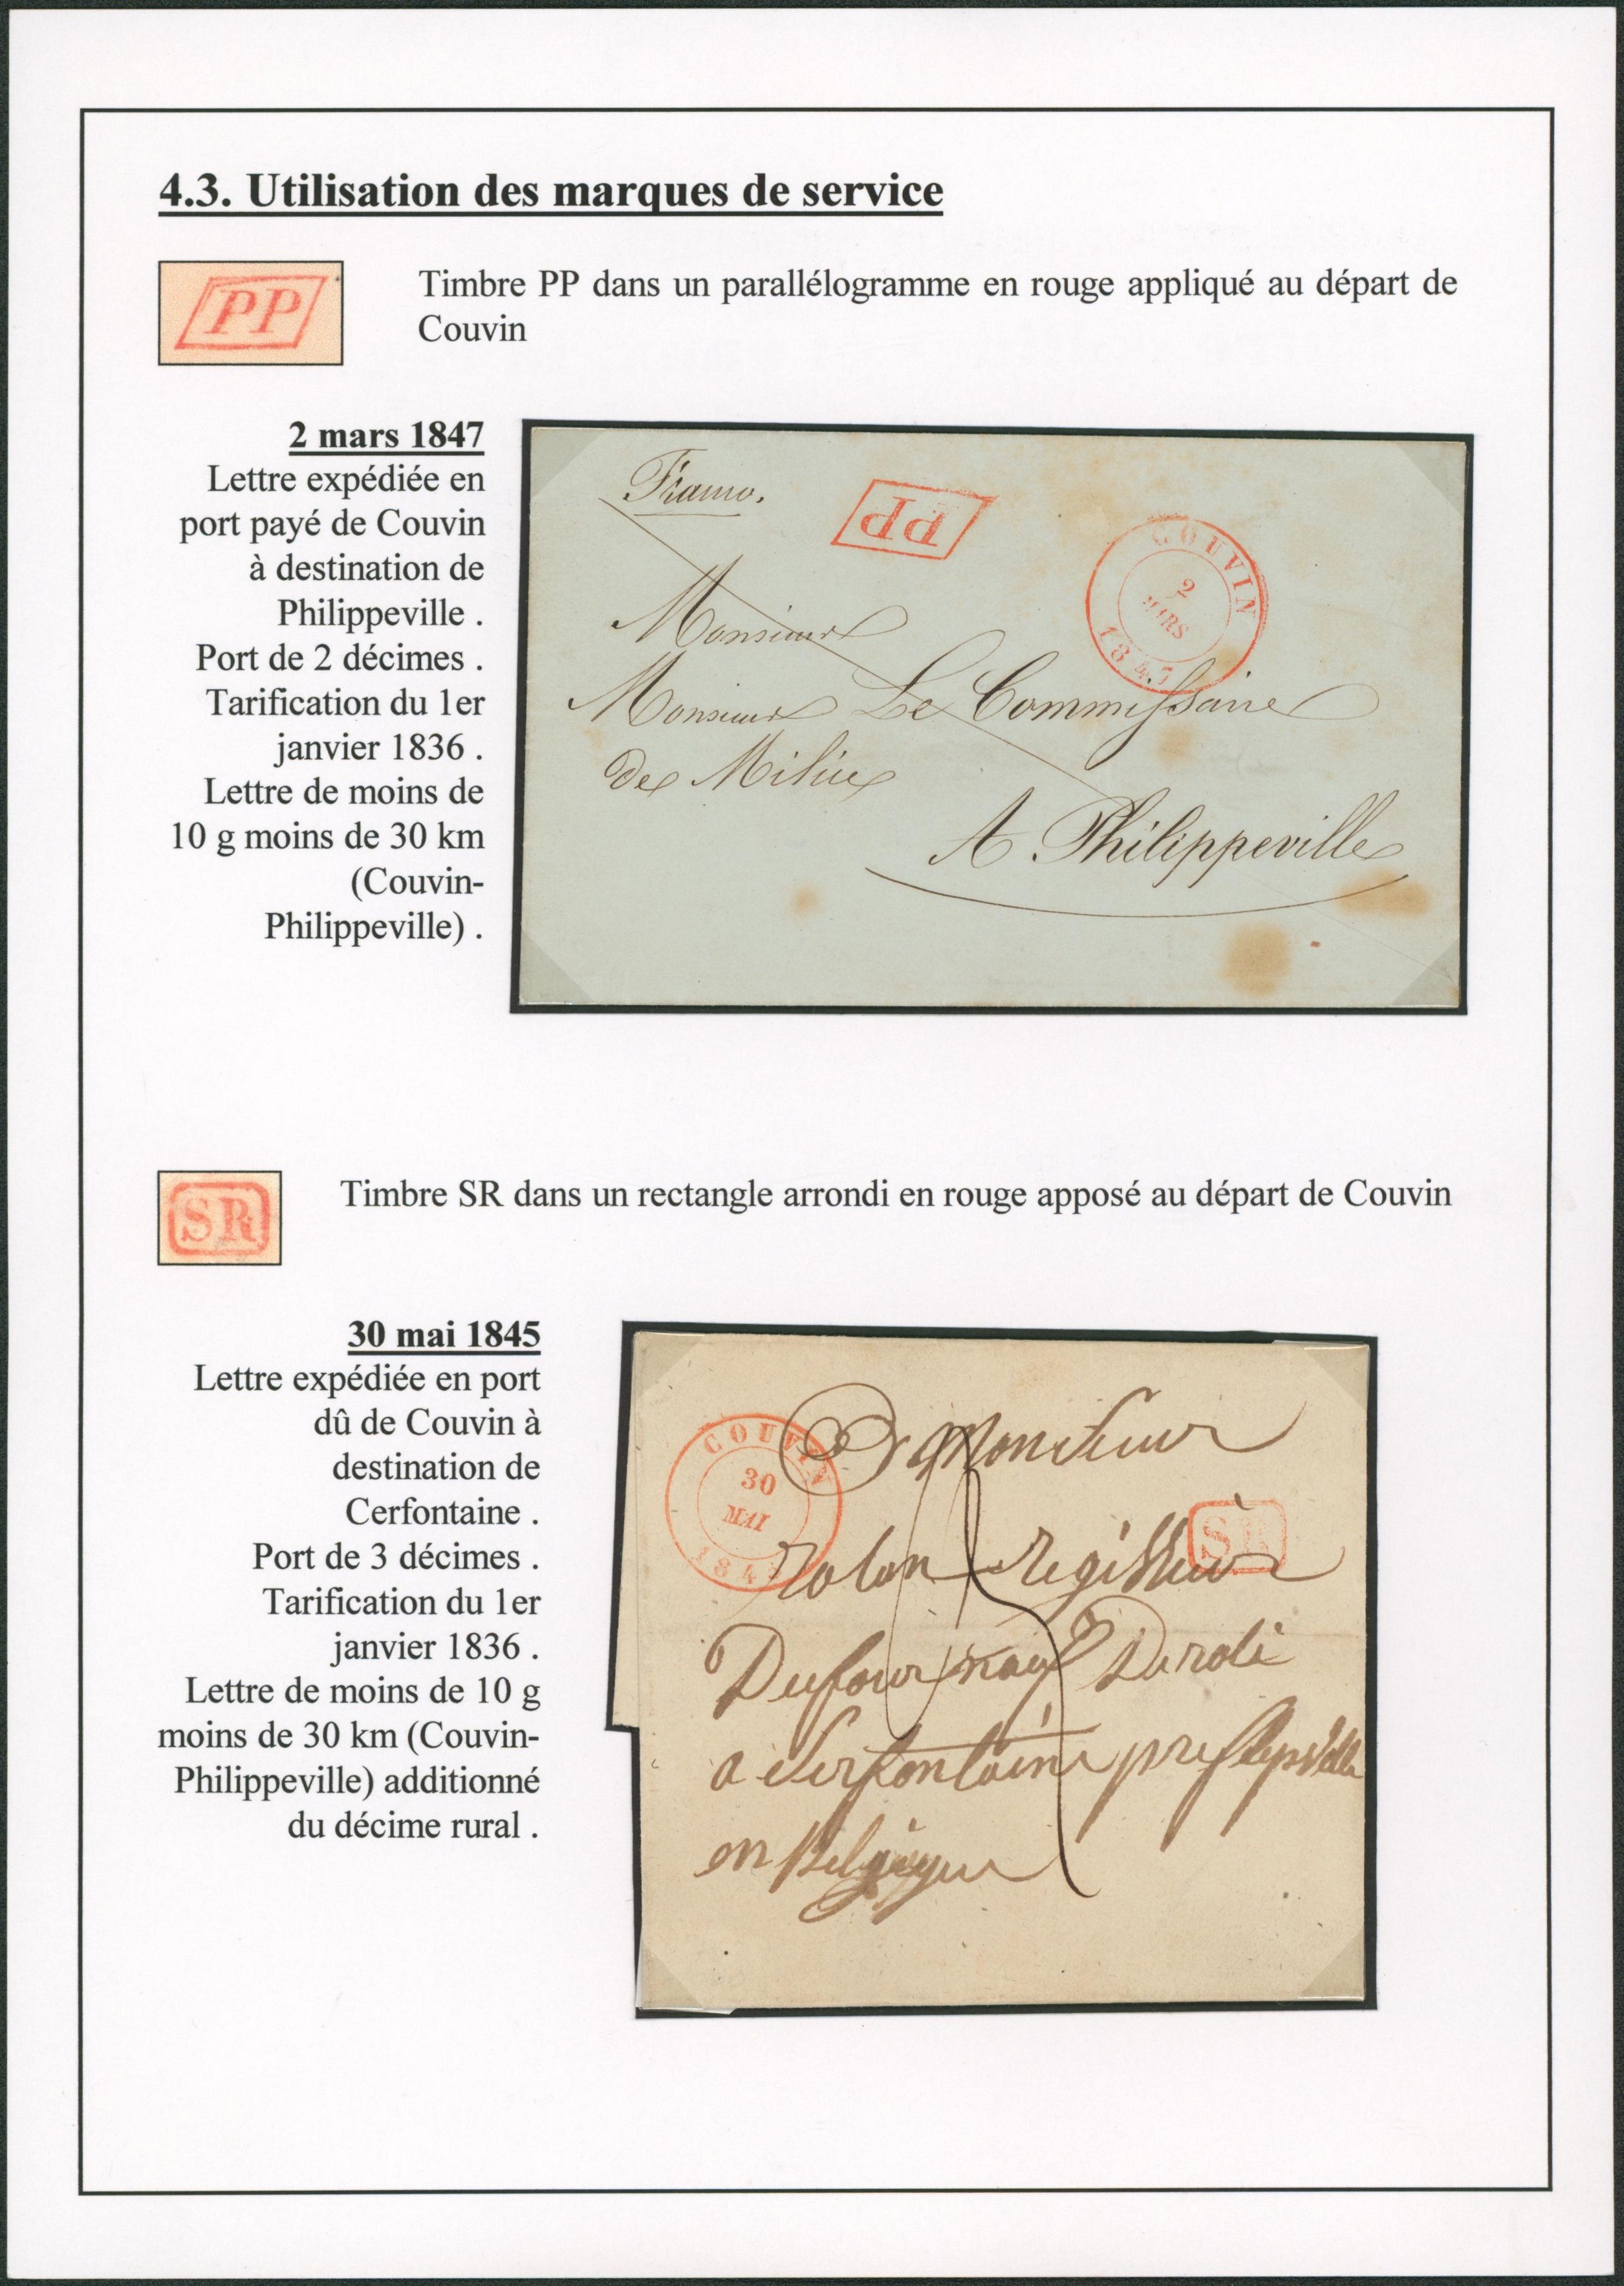 4.3. Utilisation des marques de service
PP
Timbre PP dans un parallélogramme en rouge appliqué au départ de
Couvin
2 mars 1847
Lettre expédiée en
port payé de Couvin
à destination de
Philippeville .
Port de 2 décimes .
Tarification du 1er
janvier 1836 .
Lettre de moins de
10 g moins de 30 km
(Couvin-
Philippeville) .
PP
COUVIN
2
MARS
1847
Monsieur
Monsieur Le Commissaire
de Milice
A Philippeville
SR
Timbre SR dans un rectangle arrondi en rouge apposé au départ de Couvin
30 mai 1845
Lettre expédiée en port
dû de Couvin à
destination de
Cerfontaine .
Port de 3 décimes .
Tarification du 1er
janvier 1836 .
Lettre de moins de 10 g
moins de 30 km (Couvin-
Philippeville) additionné
du décime rural .
COUVIN
30
MAI
184
SR
Monsieur
regisseur
en Belgique